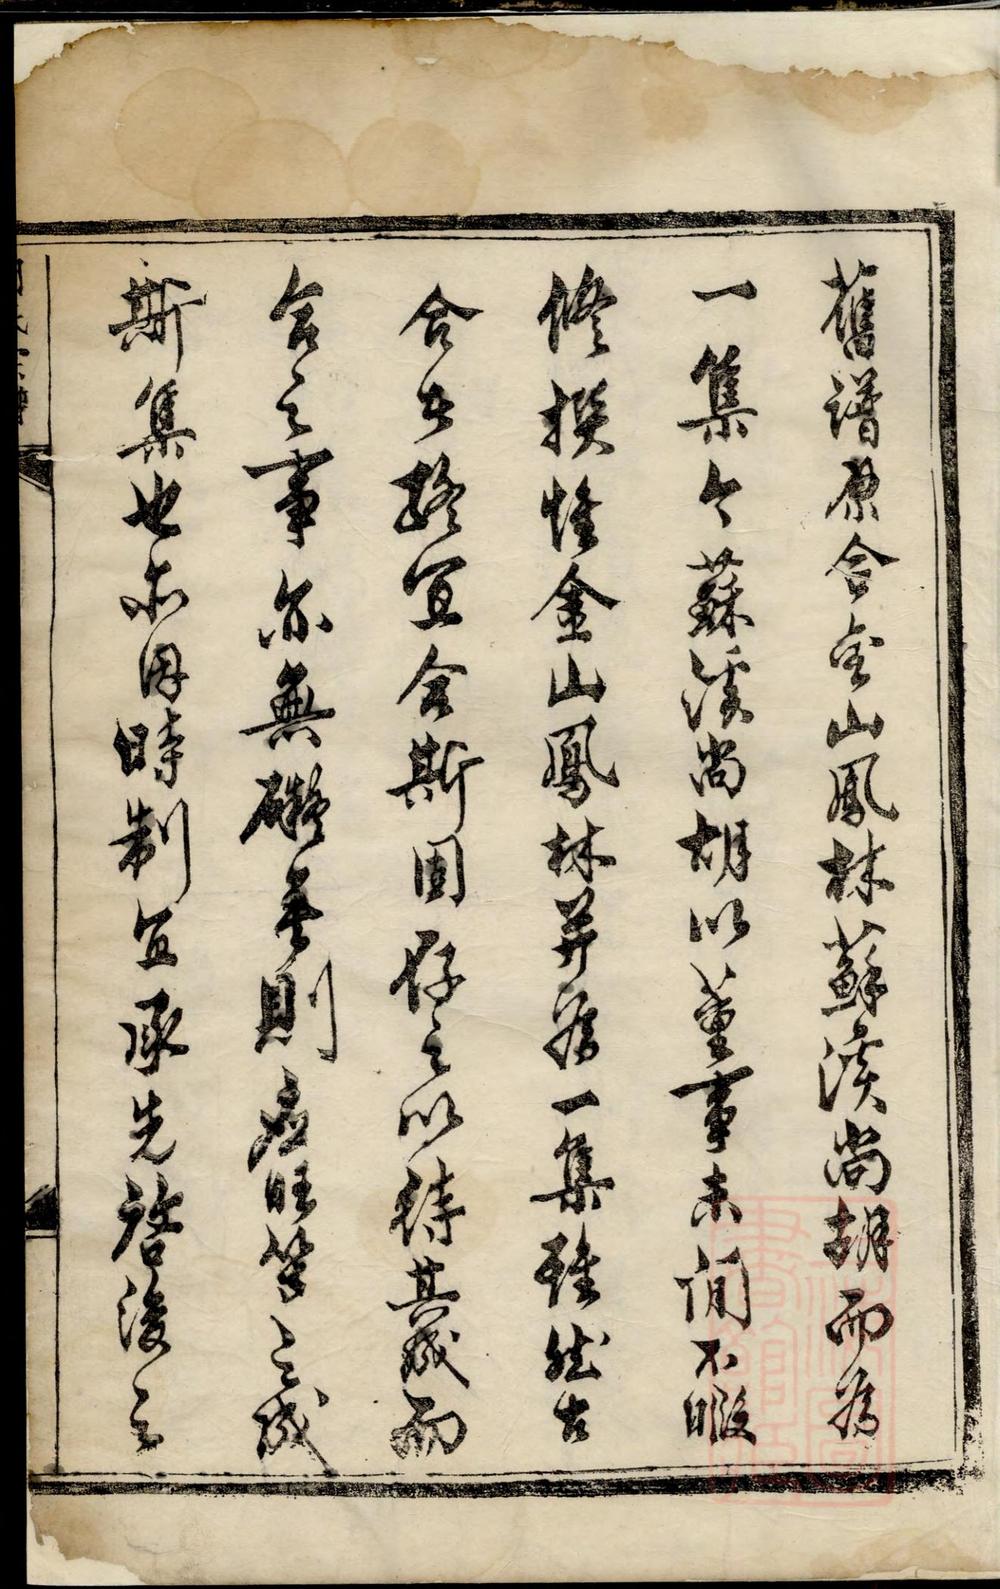 舊譜原合金山鳳林蘇溪尚胡而為
一集今蘇溪尚胡以董事未閒不暇
修撰惟金山鳳林并為一集雖然古
合今離宜合斯固存之以待其成而
合之事亦無礙矣則應旺等之成
斯集也亦因時制宜承先啓後之